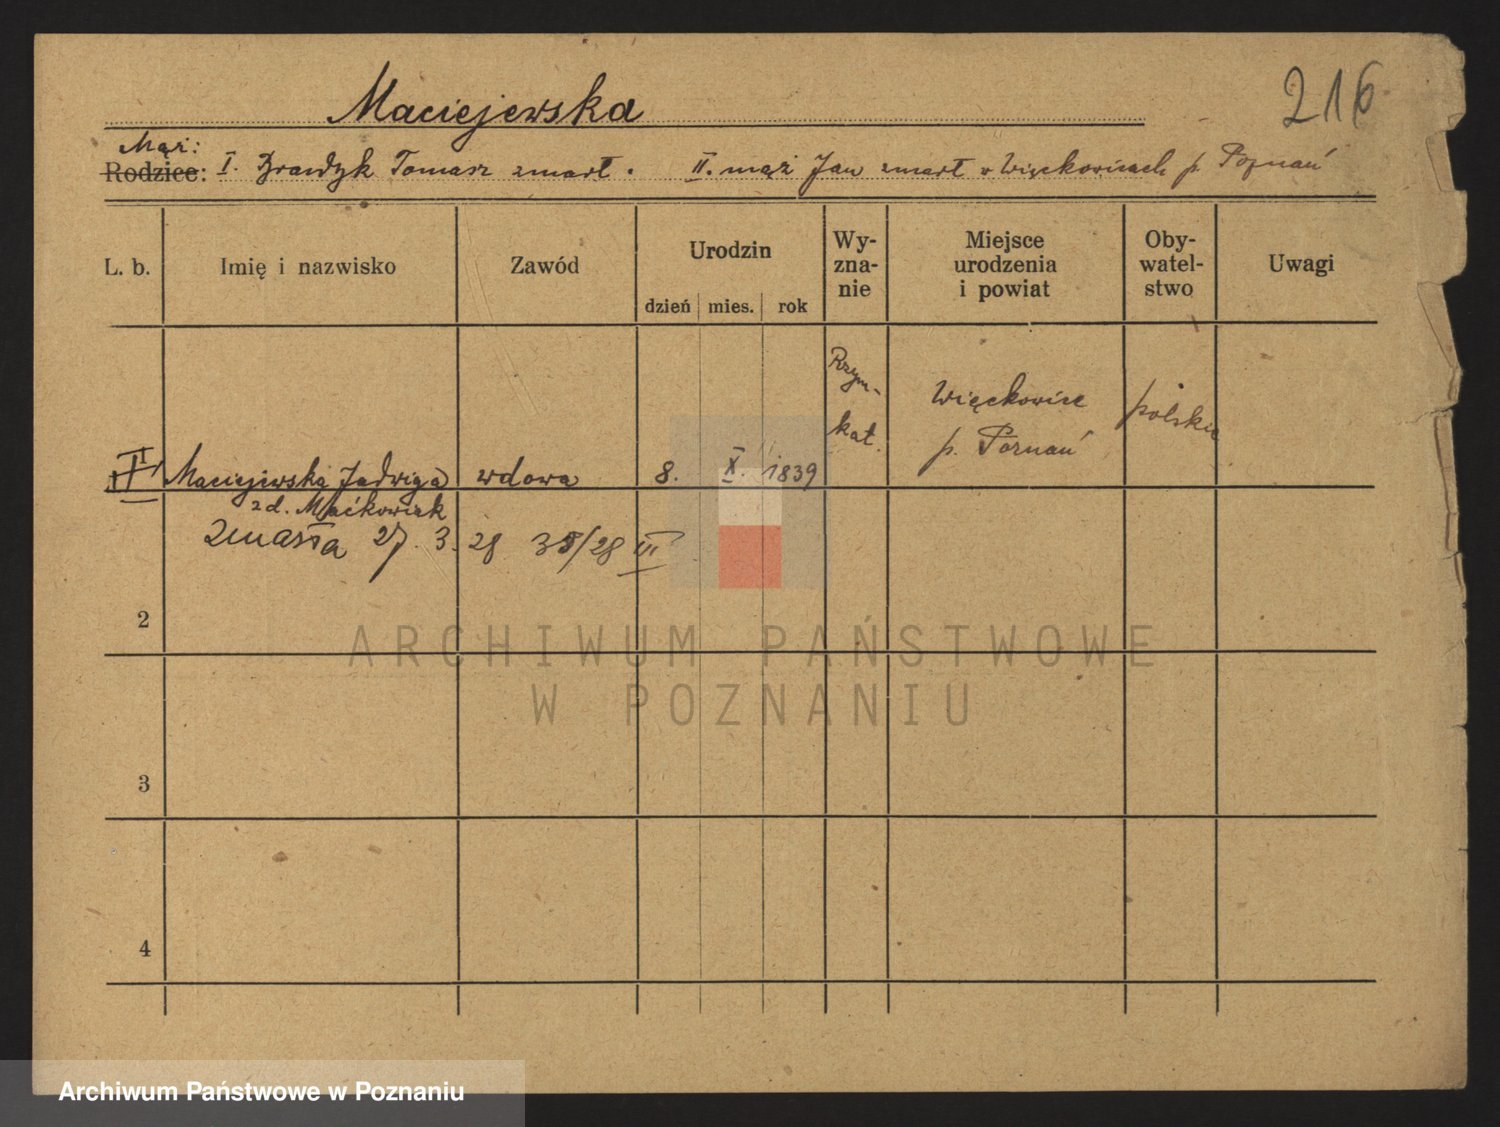 216
Maciejewska
Mąż:
Rodzice: I. Tomasz zmarł. II. mąż Jan zmarł w Więckowicach p. Poznań
L. b. Imię i nazwisko Zawód Urodzin Wy-zna-nie Miejsce urodzenia i powiat Oby-watel-stwo Uwagi
dzień mies. rok
Rzym-
kat.
Więckowice
p. Poznań
polskie
Maciejewska Jadwiga wdowa 8. X. 1839
zd. Maćkowiak
zmarła 27. 3. 28 35/28 III
2
3
4
ARCHIWUM PAŃSTWOWE
W POZNANIU
Archiwum Państwowe w Poznaniu